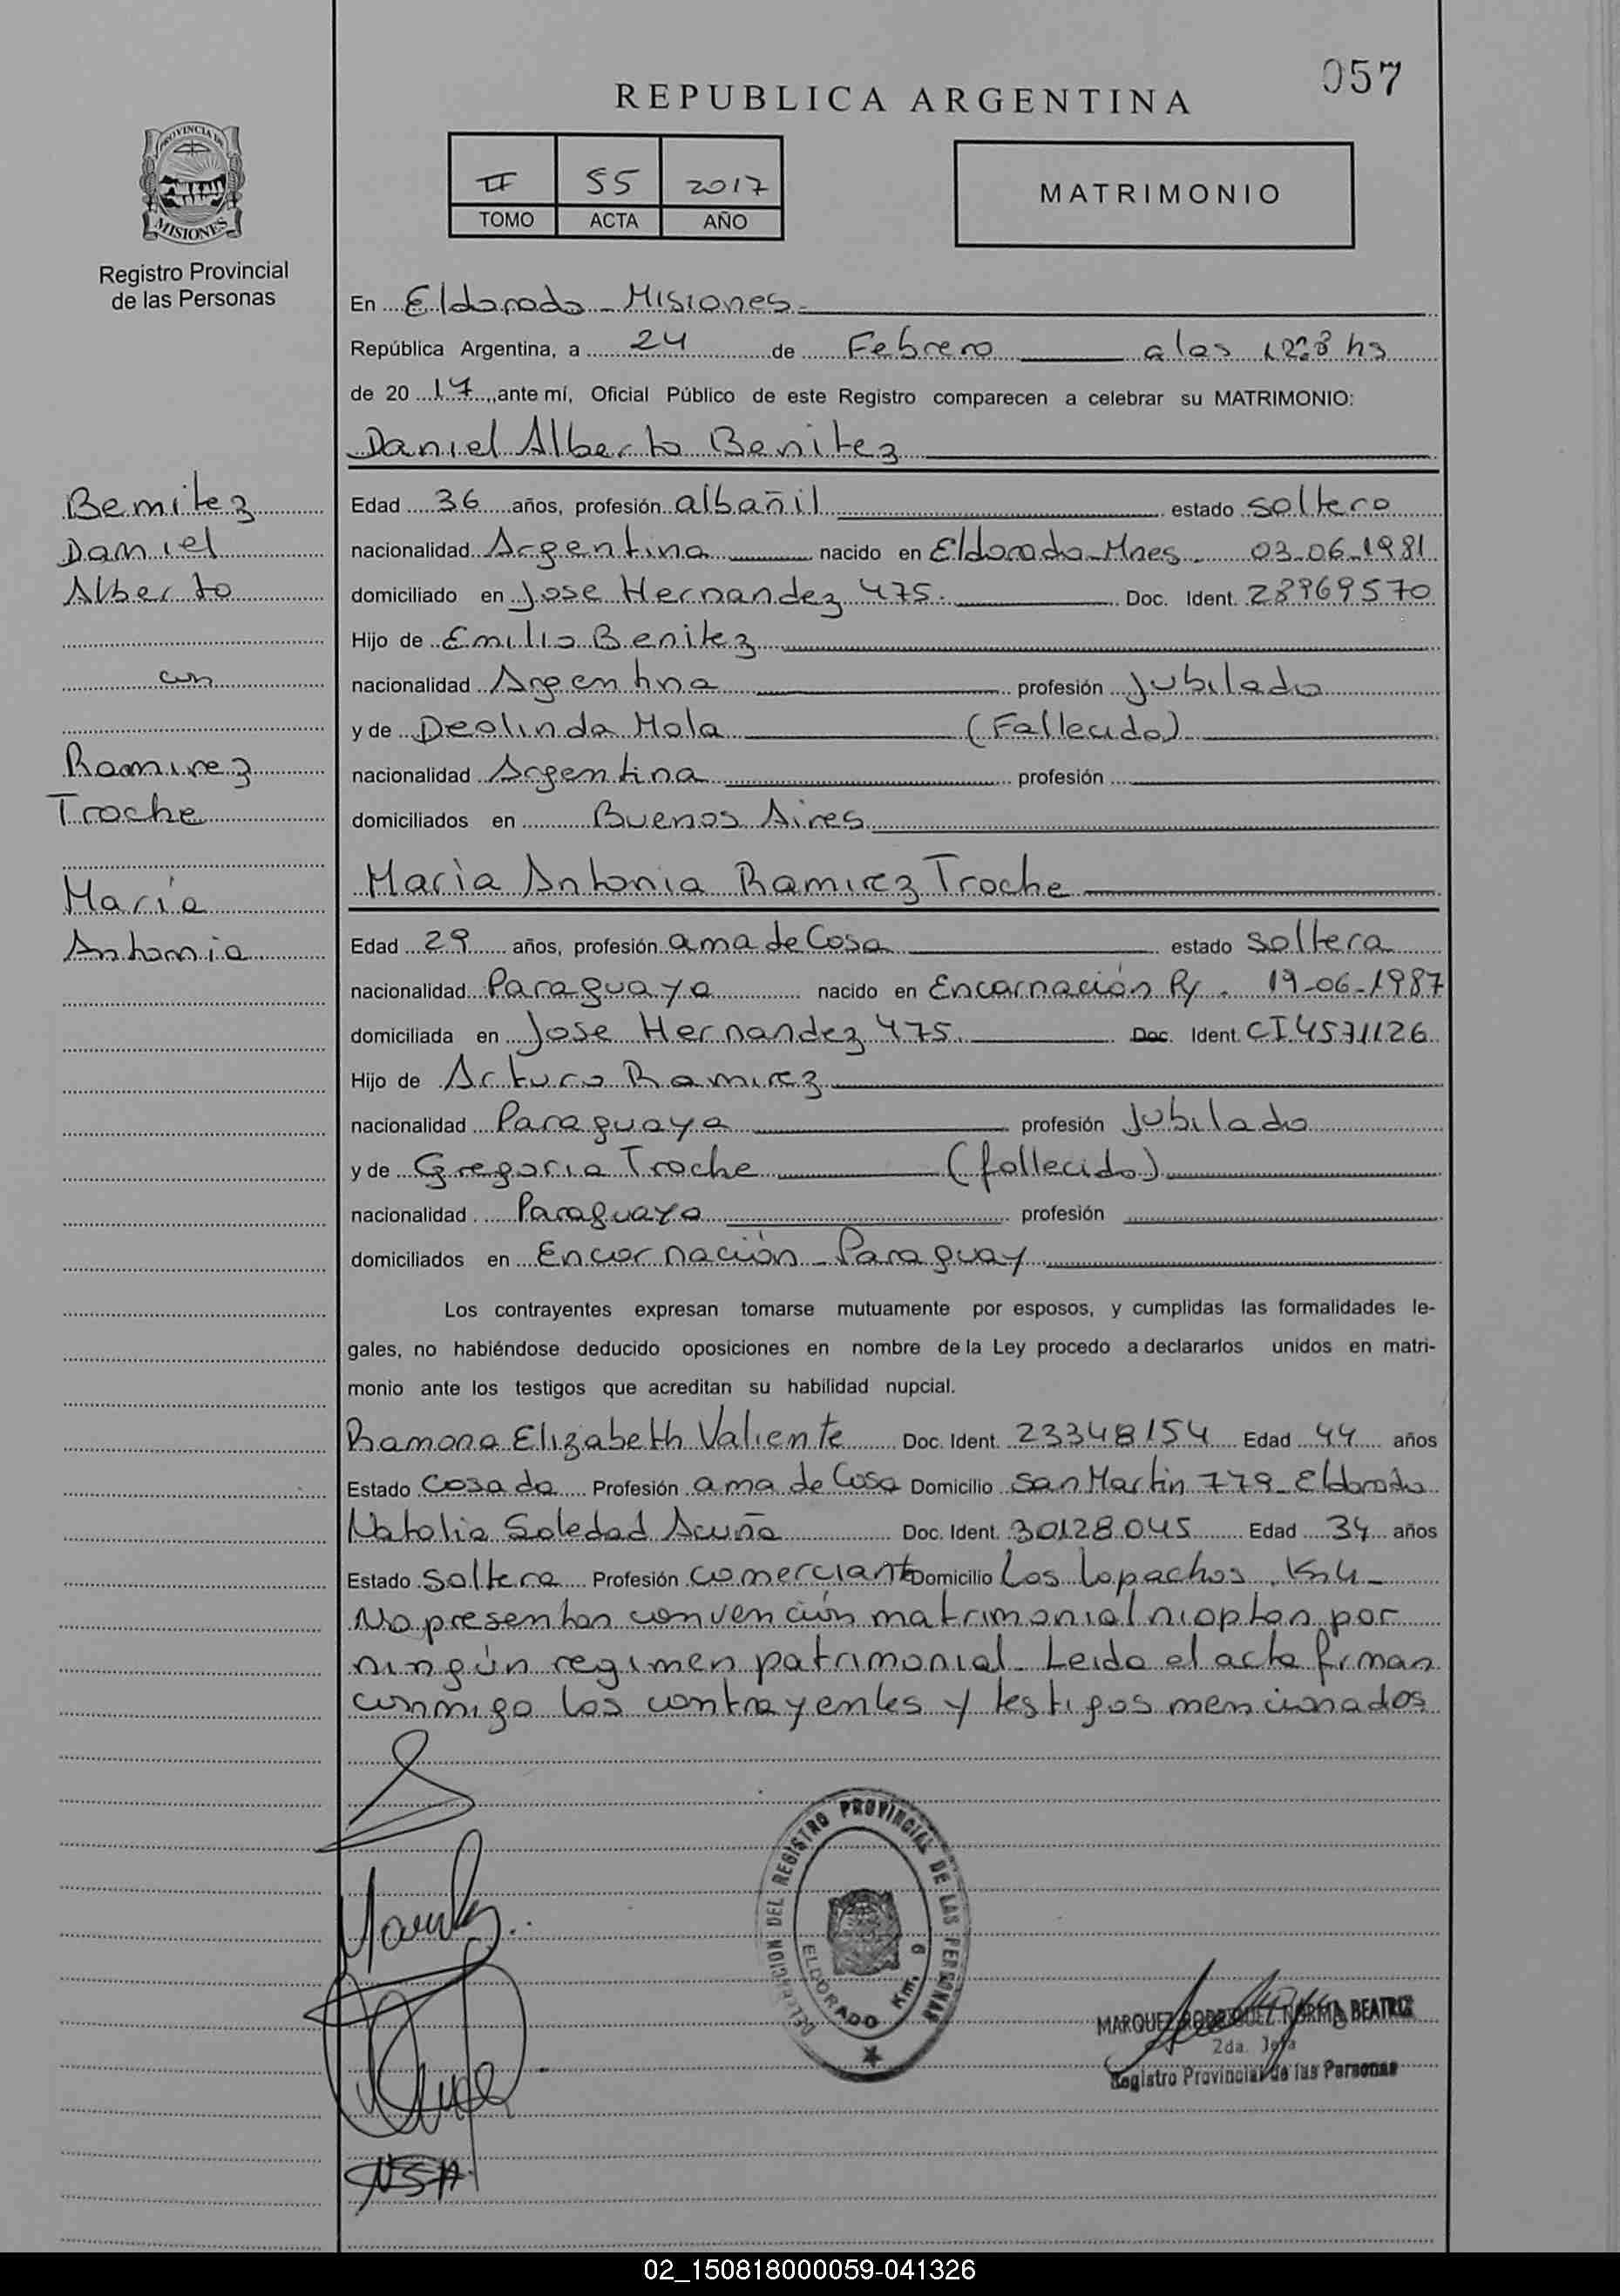 057
REPUBLICA ARGENTINA
PROVINCIA DE
MISIONES
Registro Provincial
de las Personas
II 55 2017
TOMO ACTA AÑO
MATRIMONIO
En Eldorado - Misiones
República Argentina, a 24 de Febrero a las hs
de 20 17, ante mí, Oficial Público de este Registro comparecen a celebrar su MATRIMONIO:
Daniel Alberto Benitez
Benitez
Daniel
Alberto
con
Ramirez
Troche
María
Antonia
Edad 36 años, profesión albañil estado soltero
nacionalidad Argentina nacido en Eldorado-Mnes. 03-06-1981
domiciliado en Jose Hernandez 475. Doc. Ident. 28969570
Hijo de Emilio Benitez
nacionalidad Argentina profesión Jubilado
y de Deolinda Mola (Fallecida)
nacionalidad Argentina profesión
domiciliados en Buenos Aires
Marìa Antonia Ramirez Troche
Edad 29 años, profesión ama de Casa estado soltera
nacionalidad Paraguaya nacido en Encarnación Py. 19-06-1987
domiciliada en Jose Hernandez 475. Doc. Ident. CI.4571126
Hijo de Arturo Ramirez
nacionalidad Paraguaya profesión Jubilado
y de Gregoria Troche (fallecida)
nacionalidad Paraguaya profesión
domiciliados en Encarnación - Paraguay
Los contrayentes expresan tomarse mutuamente por esposos, y cumplidas las formalidades le-
gales, no habiéndose deducido oposiciones en nombre de la Ley procedo a declararlos unidos en matri-
monio ante los testigos que acreditan su habilidad nupcial.
Ramona Elizabeth Valiente Doc. Ident. 23348154 Edad 44 años
Estado Casada Profesión ama de Casa Domicilio San Martin 779 - Eldorado
Natalia Soledad Acuña Doc. Ident. 30128045 Edad 34 años
Estado Soltera Profesión comerciante Domicilio Los lapachos. Km4-
No presentan convención matrimonial ni optan por
ningún regimen patrimonial. Leida el acta firman
conmigo los contrayentes y testigos mencionados
DELEGACION DEL REGISTRO PROVINCIAL DE LAS PERSONAS
ELDORADO Km. 6
NSA
MARQUEZ RODRIGUEZ NORMA BEATRIZ
2da. Jefa
Registro Provincial de las Personas
02_150818000059-041326